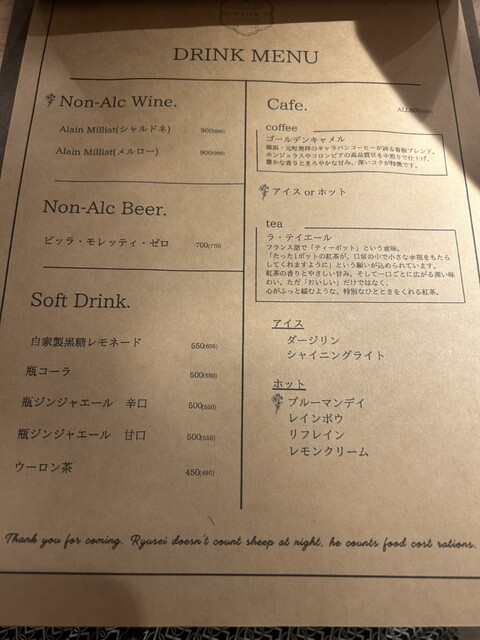 DRINK MENU
Non-Alc Wine.
Alain Milliat(シャルドネ) 900(990)
Alain Milliat(メルロー) 900(990)
Non-Alc Beer.
ビッラ・モレッティ・ゼロ 700(770)
Soft Drink.
自家製黒糖レモネード 550(605)
瓶コーラ 500(550)
瓶ジンジャエール 辛口 500(550)
瓶ジンジャエール 甘口 500(550)
ウーロン茶 450(495)
Cafe.
coffee
ゴールデンキャメル
横浜・元町発祥のキャラバンコーヒーが誇る看板ブレンド。
ホンジュラスやコロンビアの高品質豆を中煎りで仕上げ、
豊かな香りとまろやかな甘み、深いコクが特徴です。
アイス or ホット
tea
ラ・テイエール
フランス語で「ティーポット」という意味。
「たった1ポットの紅茶が、日常の中で小さな幸福をもたら
してくれますように」という願いが込められています。
紅茶の香りとやさしい甘み、そして一口ごとに広がる深い味
わい。ただ「おいしい」だけではなく、
心がふっと緩むような、特別なひとときをくれる紅茶。
アイス
ダージリン
シャイニングライト
ホット
ブルーマンデイ
レインボウ
リフレイン
レモンクリーム
Thank you for coming. Ryusei doesn't count sheep at night, he counts food cost rations.